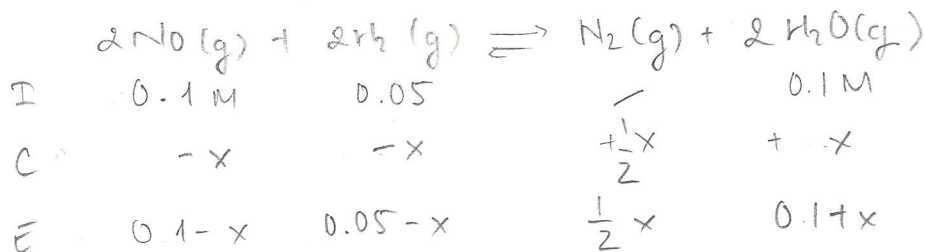 2NO(g) + 2H₂(g) ⇌ N₂(g) + 2H₂O(g)
I 0.1 M 0.05 — 0.1 M
C -x -x +½x + x
E 0.1-x 0.05-x ½x 0.1+x